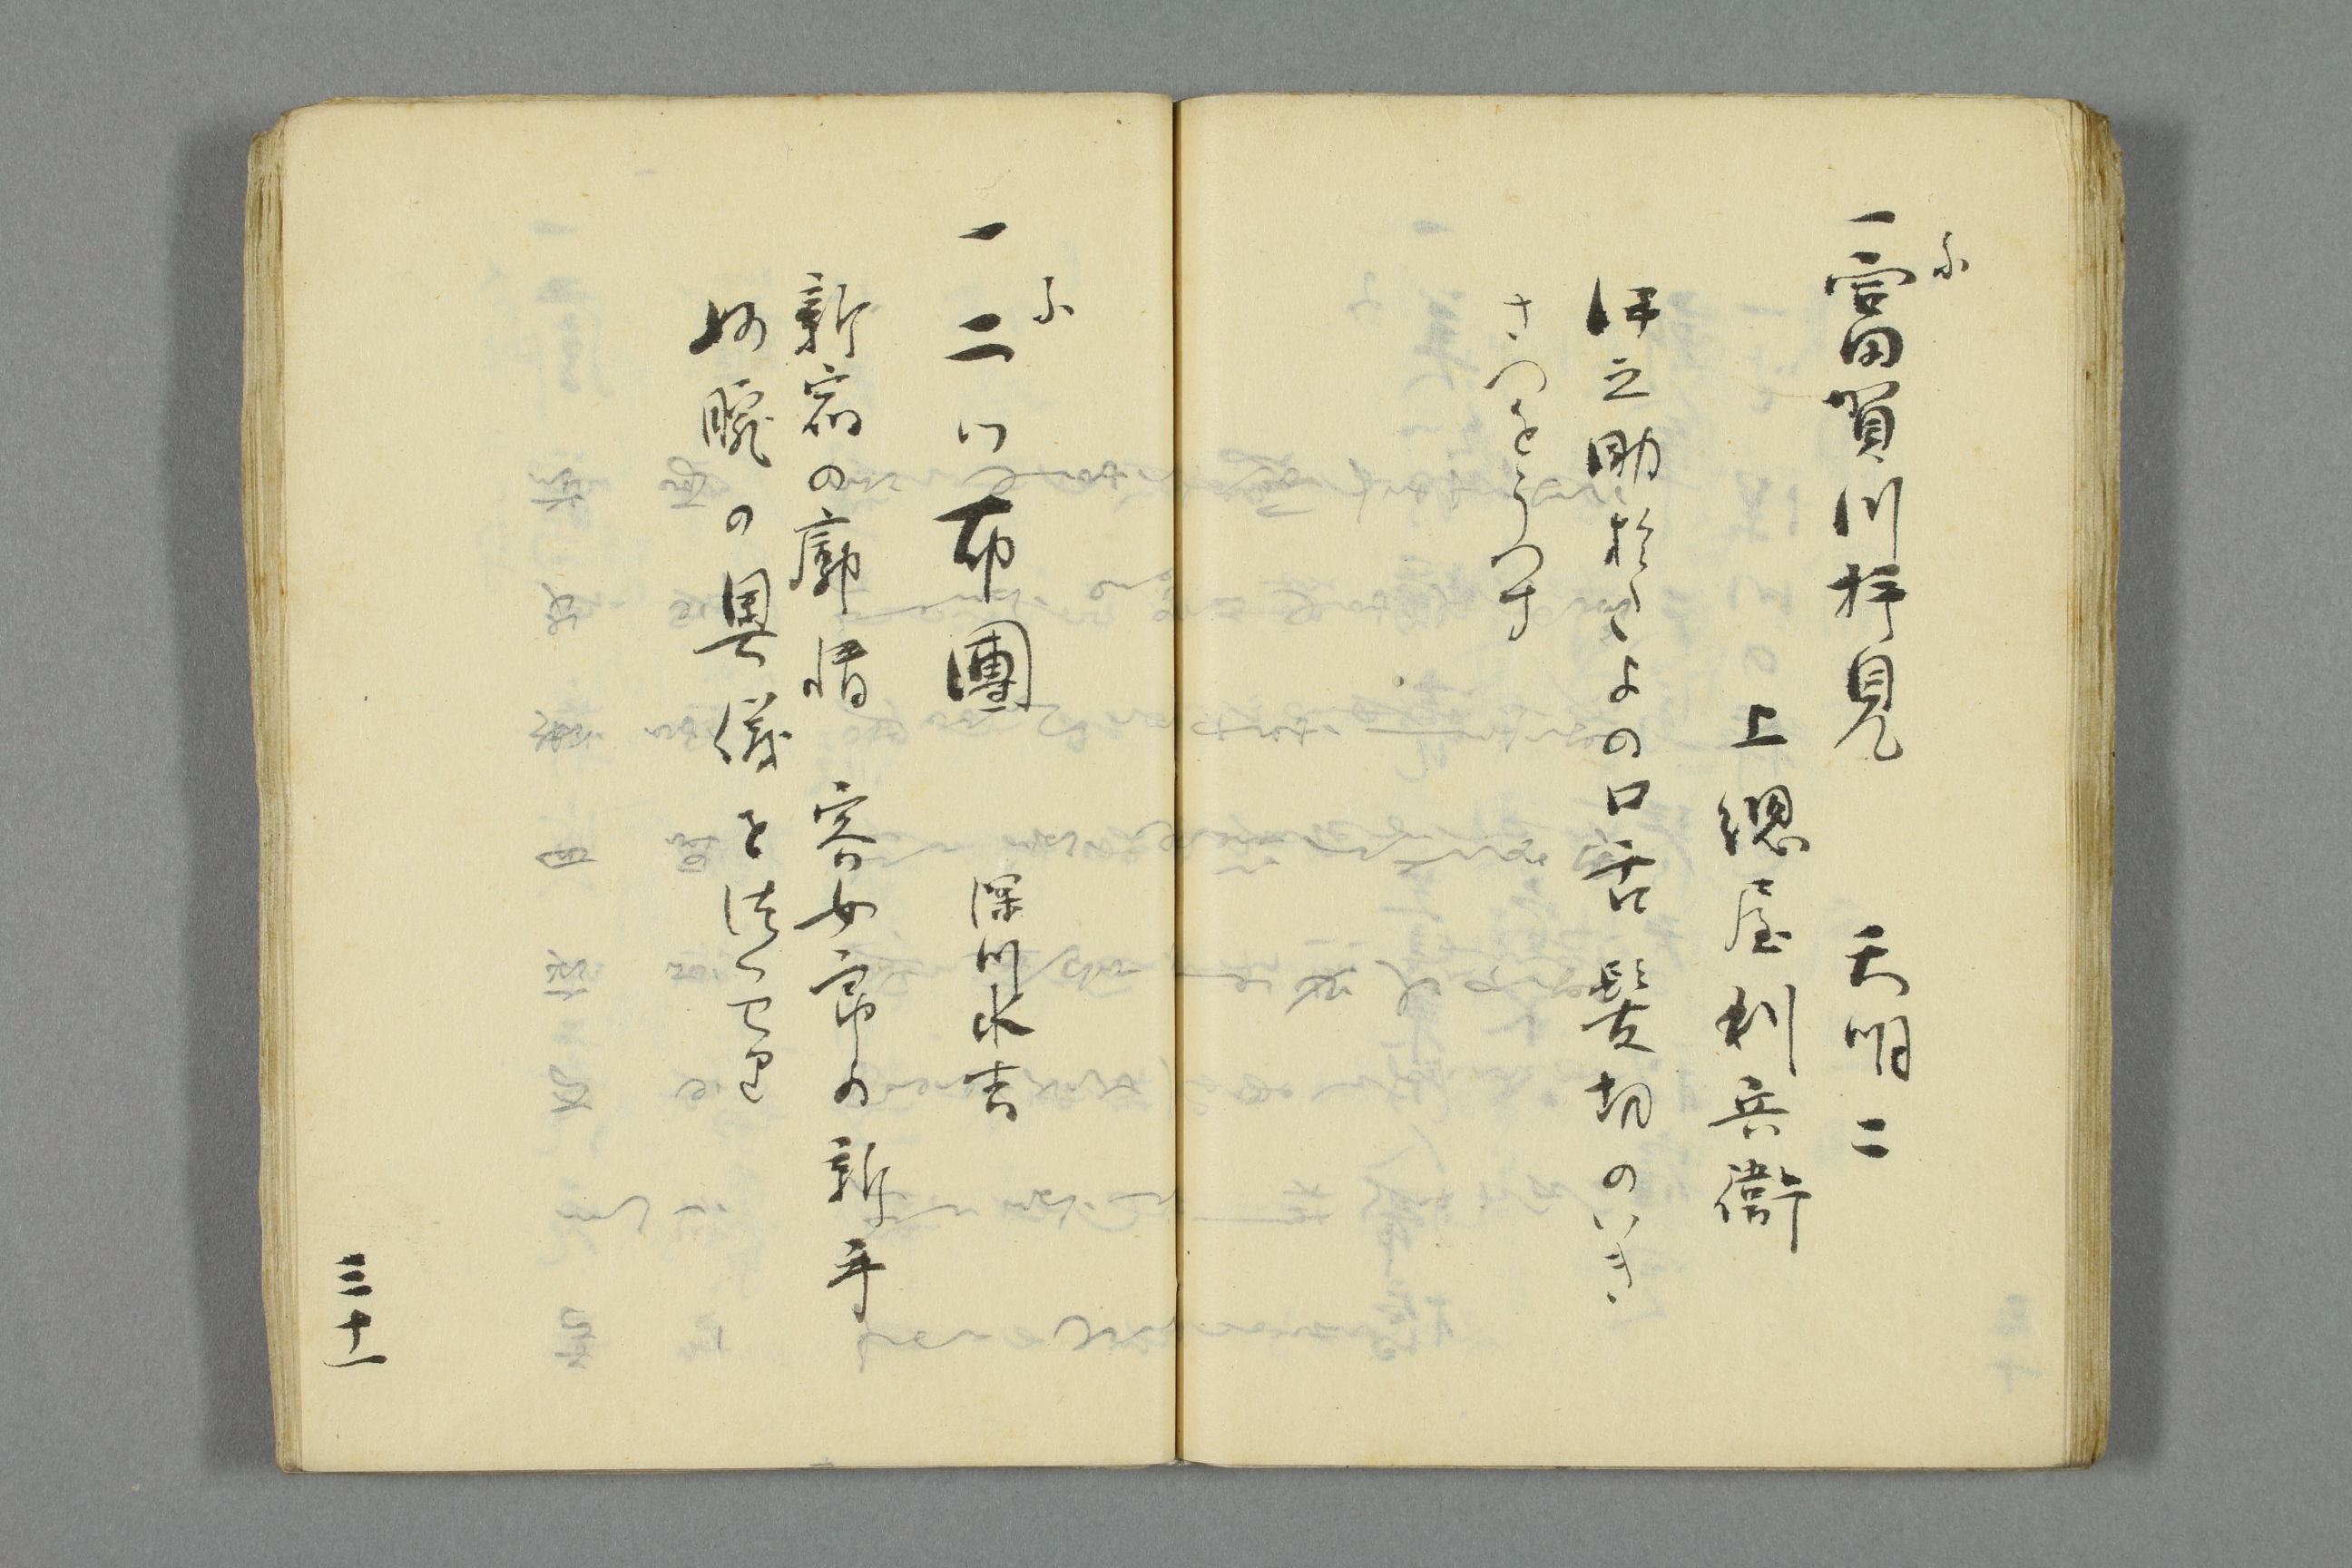 ふ
一富賀川拝見 天明二
上總屋利兵衛
伊之助おきよの口舌髪切のいき
さつをうつす
ふ
一二い布團 深川水吉
新宿の廓情 客女郎の新手
の異儀を
三十一